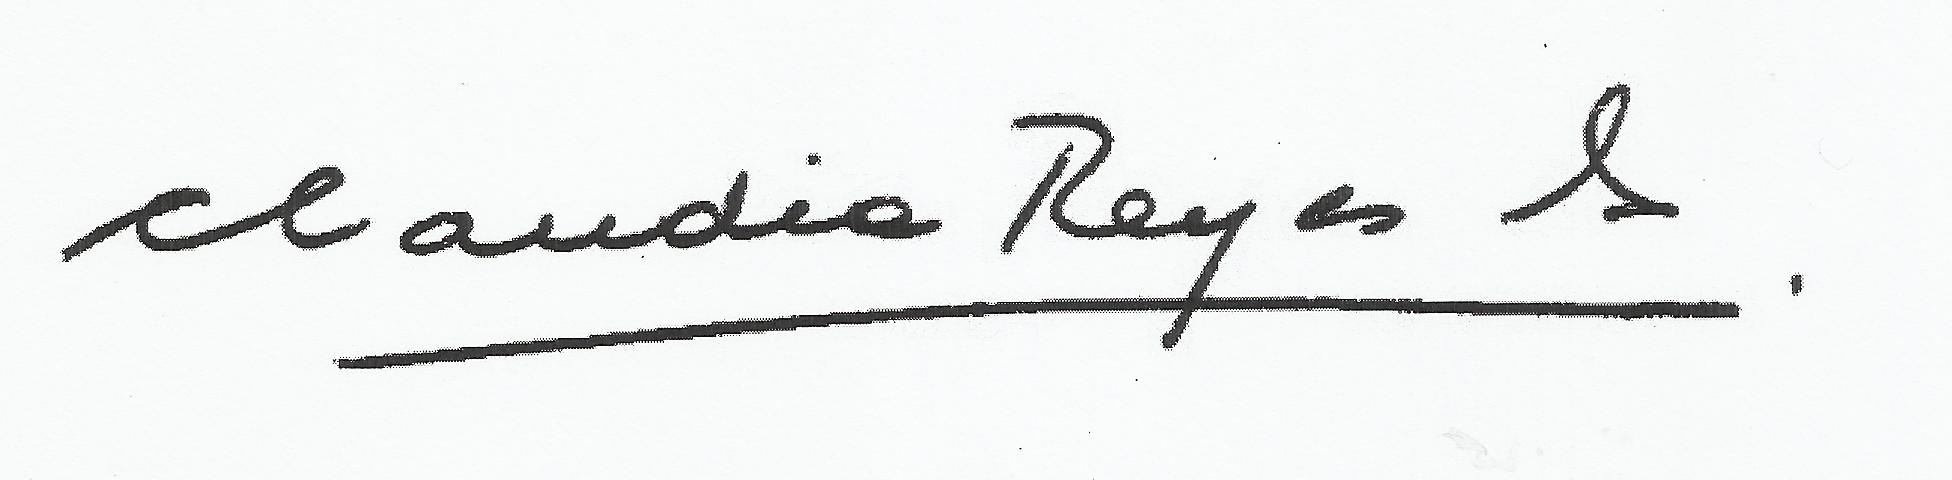 Claudia Reyes S.